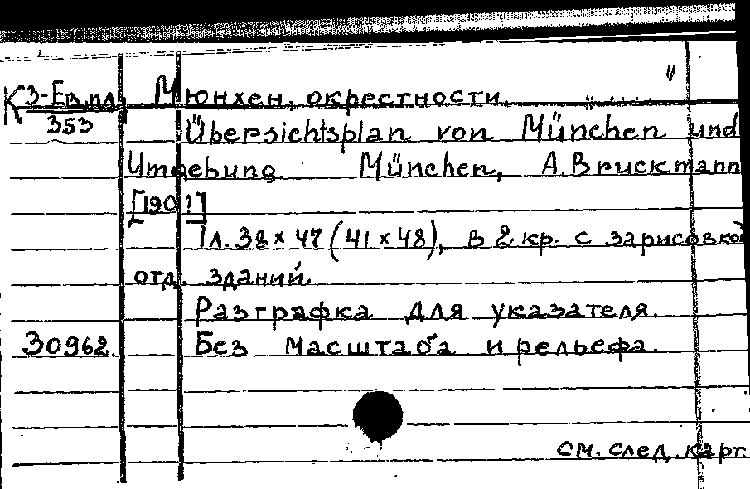 К3-Ев.пл. Мюнхен, окрестности.
353 Übersichtsplan von München und
Umgebung München, A. Bruckmann
[190!]
1 л. 38 x 47 (41 x 48), в 2 кр. с зарисовкой
отд. зданий.
Разграфка для указателя.
30962 Без масштаба и рельефа.
см. след. карт.